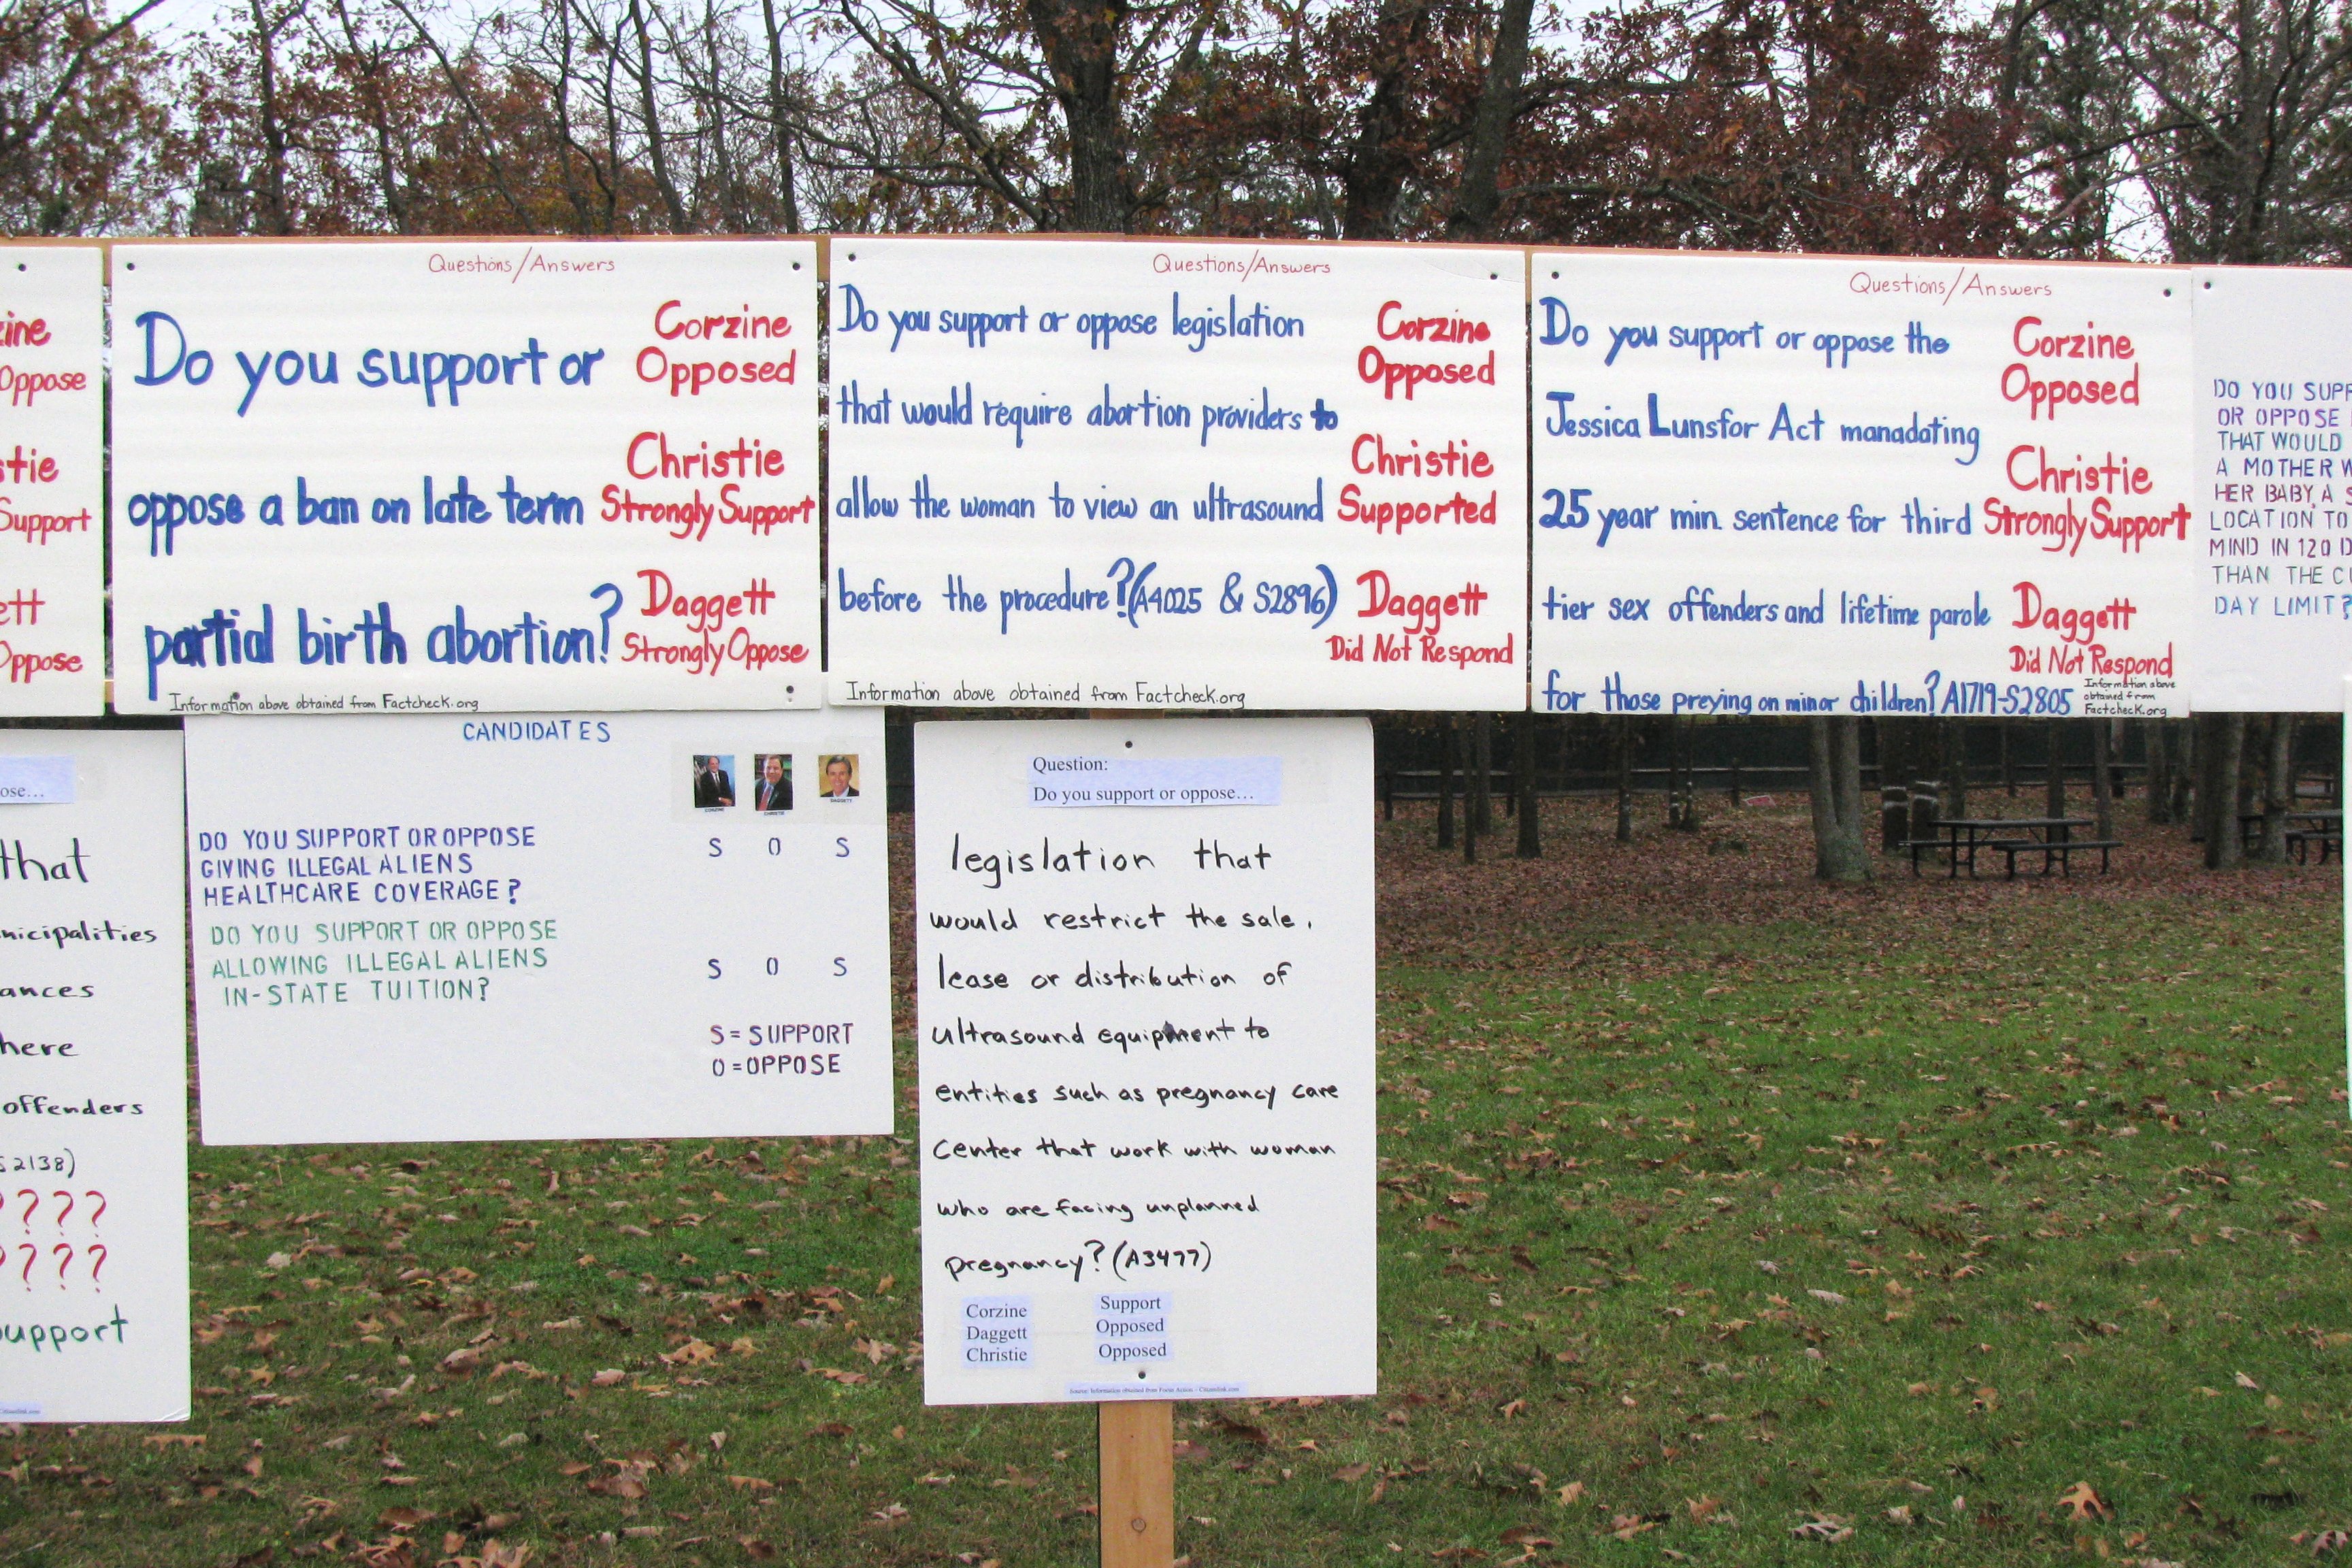 zine
Oppose
stie
Support
ett
Oppose
Questions/Answers
Do you support or
oppose a ban on late term
partial birth abortion?
Corzine
Opposed
Christie
Strongly Support
Daggett
Strongly Oppose
Information above obtained from Factcheck.org
Questions/Answers
Do you support or oppose legislation
that would require abortion providers to
allow the woman to view an ultrasound
before the procedure? (A4025 & S2896)
Corzine
Opposed
Christie
Supported
Daggett
Did Not Respond
Information above obtained from Factcheck.org
Questions/Answers
Do you support or oppose the
Jessica Lunsfor Act manadating
25 year min. sentence for third
tier sex offenders and lifetime parole
for those preying on minor children? A1719-S2805
Corzine
Opposed
Christie
Strongly Support
Daggett
Did Not Respond
Information above
obtained from
Factcheck.org
DO YOU SUPP
OR OPPOSE
THAT WOULD
A MOTHER W
HER BABY, A S
LOCATION TO
MIND IN 120 D
THAN THE CU
DAY LIMIT?
ose...
that
nicipalities
ances
here
offenders
S2138)
????
????
upport
CANDIDATES
CORZINE CHRISTIE DAGGETT
DO YOU SUPPORT OR OPPOSE
GIVING ILLEGAL ALIENS
HEALTHCARE COVERAGE?
S O S
DO YOU SUPPORT OR OPPOSE
ALLOWING ILLEGAL ALIENS
IN-STATE TUITION?
S O S
S = SUPPORT
O = OPPOSE
Question:
Do you support or oppose...
legislation that
would restrict the sale,
lease or distribution of
ultrasound equipment to
entities such as pregnancy care
center that work with woman
who are facing unplanned
pregnancy? (A3477)
Corzine Support
Daggett Opposed
Christie Opposed
Source: Information obtained from Focus Action - Citizenlink.com